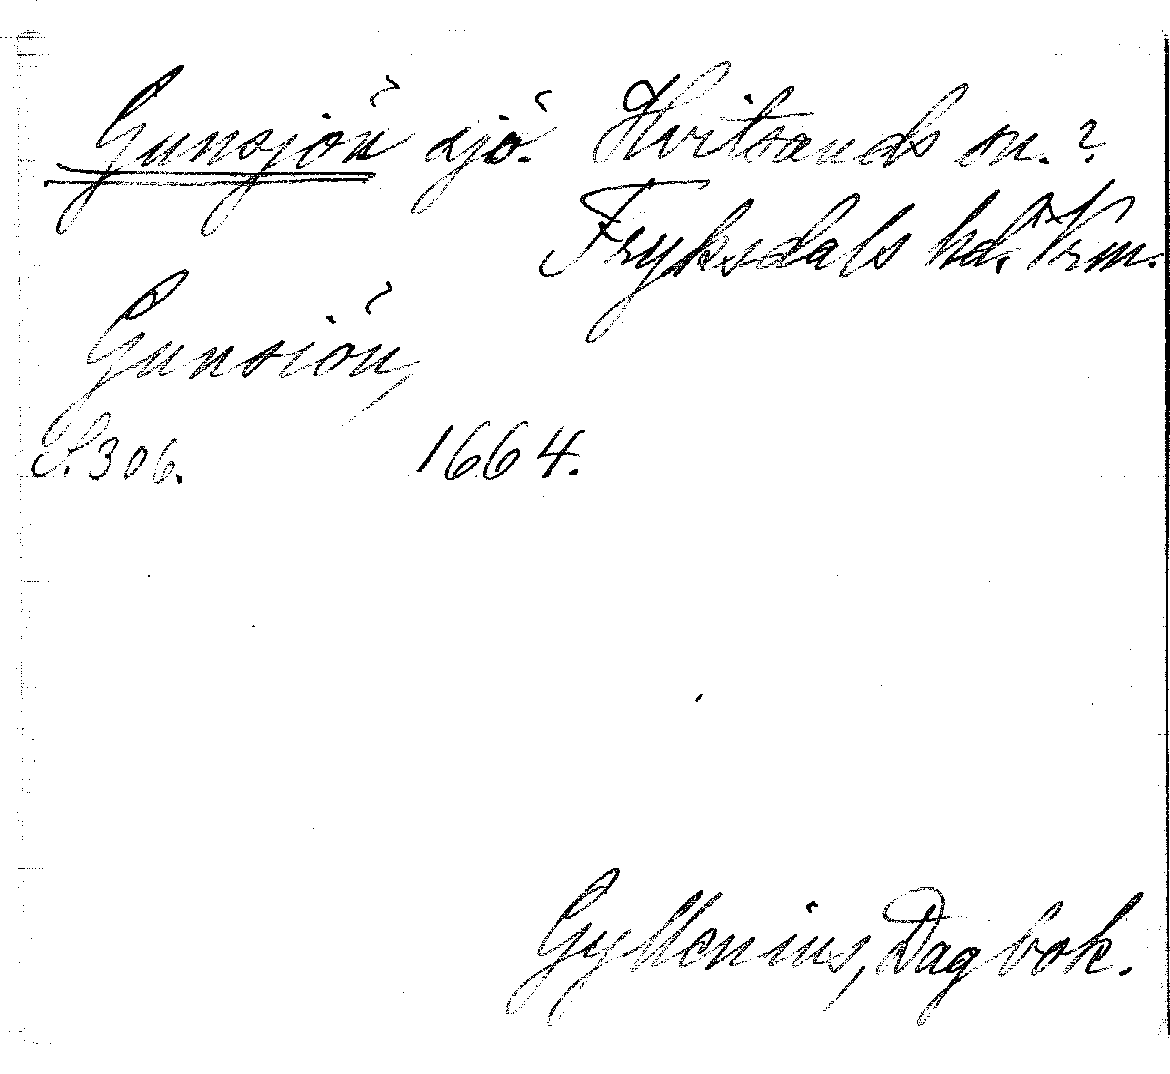 Gunsjön sjö. Hvitsands sn.?
Fryksdals hd. Vrm.
Gunsiön,
S. 306. 1664.
Gyllenius, Dagbok.